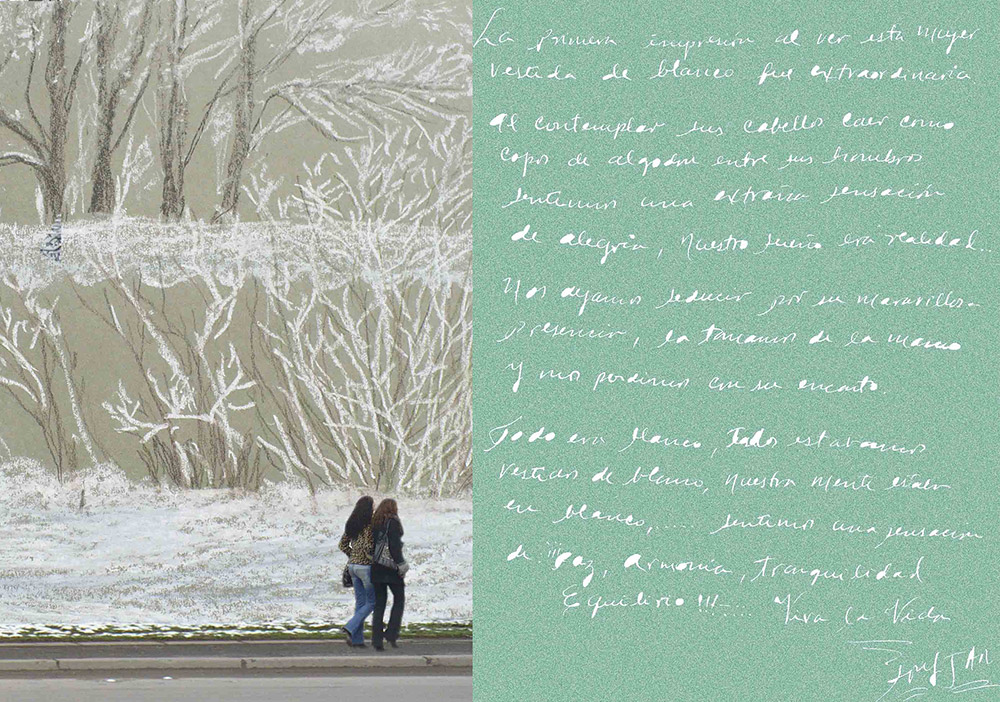 La primera impresión al ver esta mujer
vestida de blanco fue extraordinaria
Al contemplar sus cabellos caer como
copos de algodon entre sus hombros
sentimos una extraña sensación
de alegria, Nuestro sueño era realidad...
Nos dejamos seducir por su maravillosa
presencia, la tomamos de la mano
y nos perdimos con su encanto.
Todo era blanco, Todos estabamos
vestidos de blanco, nuestra mente
en blanco,..... sentimos una sensación
de ¡¡¡Paz, Armonia, tranquilidad
Equilibrio!!!... Viva la Vida